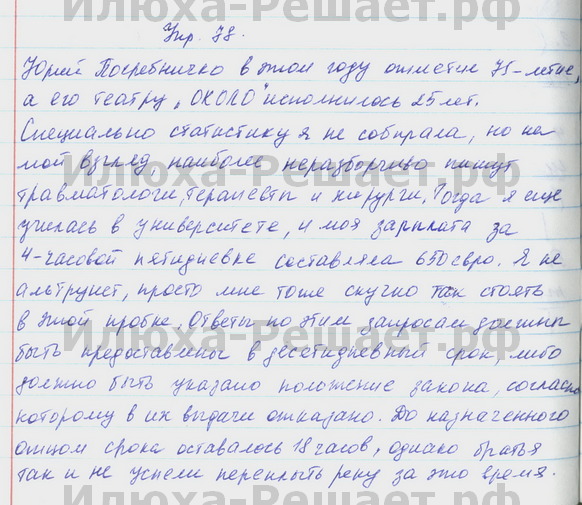 Илюха-Решает.рф
Упр. 78.
Юрий Погребничко в этом году отметил 75-летие,
а его театру „ОКОЛО" исполнилось 25 лет.
Специально статистику я не собирала, но на
мой взгляд, наиболее неразборчиво пишут
травматологи, терапевты и хирурги. Тогда я еще
училась в университете, и моя зарплата за
4-часовой пятидневке составляла 650 евро. Я не
альтруист, просто мне тоже скучно так стоять
в этой пробке. Ответы по этим запросам должны
быть предоставлены в десятидневный срок, либо
должно быть указано положение закона, согласно
которому в их выдаче отказано. До назначенного
отцом срока оставалось 18 часов, однако братья
так и не успели переплыть реку за это время.
Илюха-Решает.рф